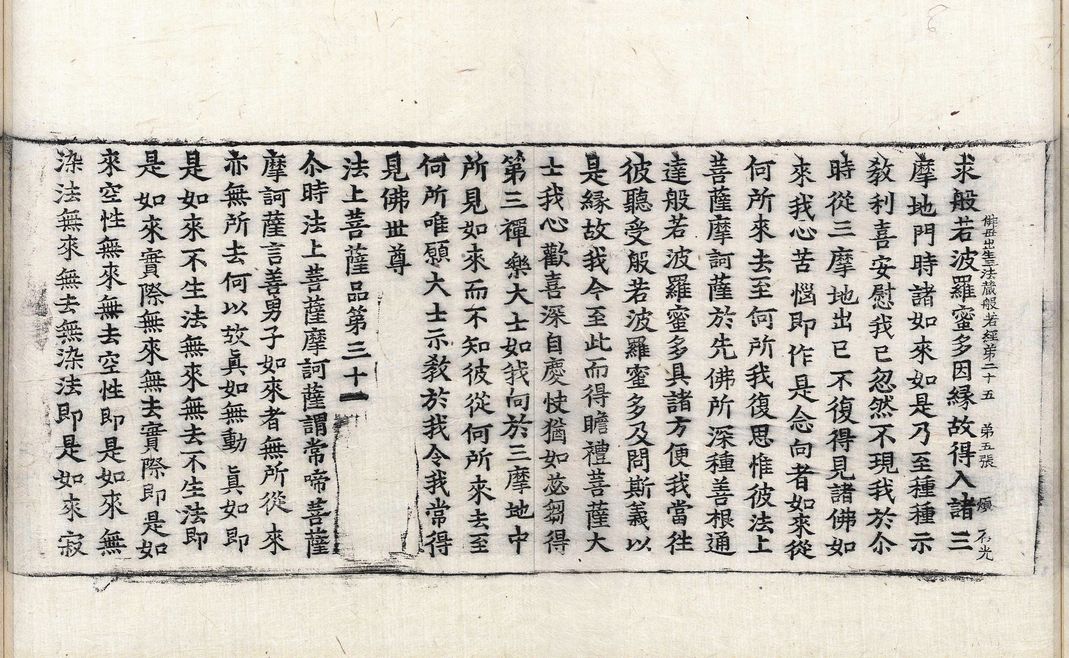 佛母出生三法藏般若經第二十五 第五張 頌 石光
求般若波羅蜜多因緣故得入諸三
摩地門時諸如來如是乃至種種示
教利喜安慰我已忽然不現我於尒
時從三摩地出已不復得見諸佛如
來我心苦惱即作是念向者如來從
何所來去至何所我復思惟彼法上
菩薩摩訶薩於先佛所深種善根通
達般若波羅蜜多具諸方便我當往
彼聽受般若波羅蜜多及問斯義以
是緣故我今至此而得瞻禮菩薩大
士我心歡喜深自慶快猶如苾芻得
第三禪樂大士如我向於三摩地中
所見如來而不知彼從何所來去至
何所唯願大士示教於我令我常得
見佛世尊
法上菩薩品第三十一
尒時法上菩薩摩訶薩謂常啼菩薩
摩訶薩言善男子如來者無所從來
亦無所去何以故真如無動真如即
是如來不生法無來無去不生法即
是如來實際無來無去實際即是如
來空性無來無去空性即是如來無
染法無來無去無染法即是如來寂